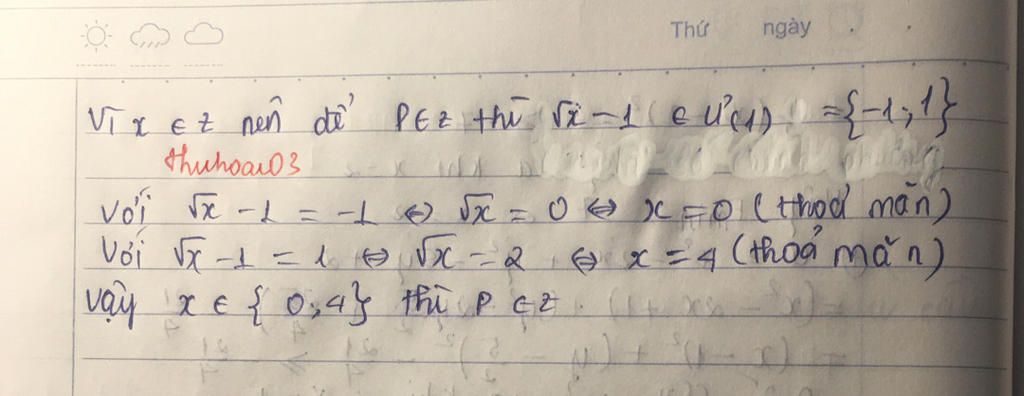 Thứ ngày
Vì x ∈ Z nên để P∈Z thì √x - 1 ∈ Ư(1) = {-1; 1}
thuhoai03
Với √x - 1 = -1 ⇔ √x = 0 ⇔ x = 0 (thoả mãn)
Với √x - 1 = 1 ⇔ √x = 2 ⇔ x = 4 (thoả mãn)
vậy x ∈ { 0; 4} thì P ∈ Z